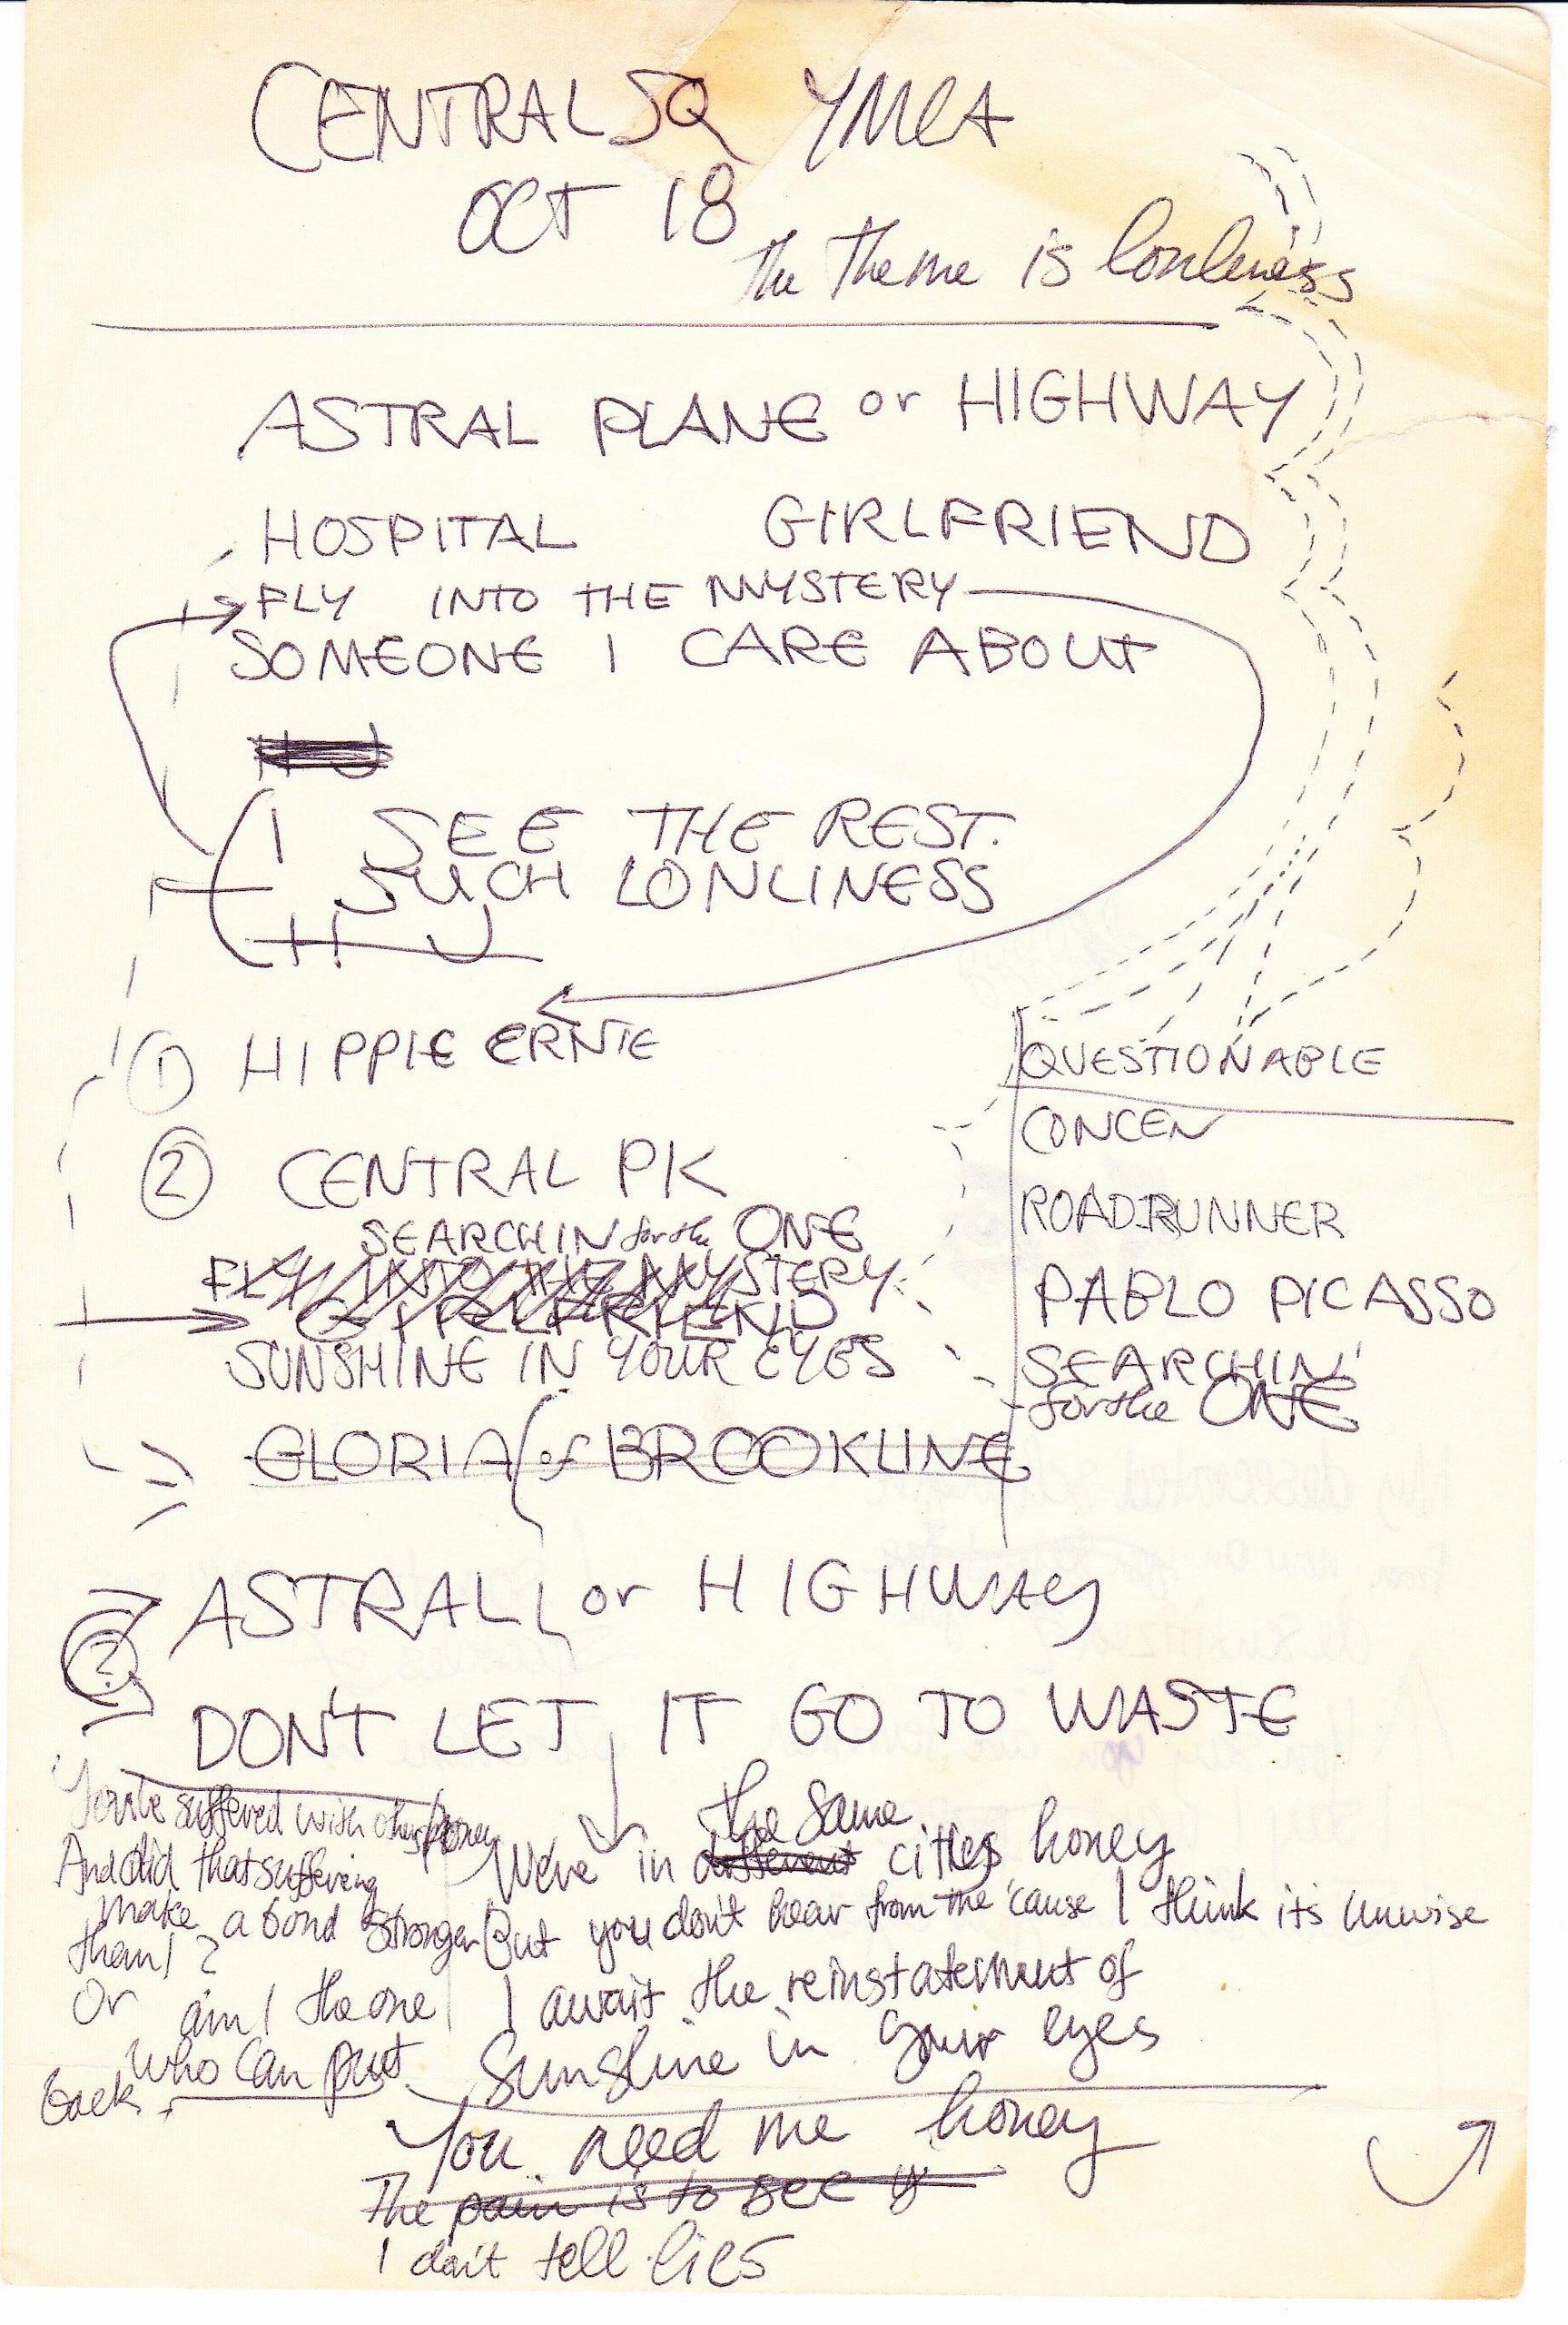 CENTRAL SQ YMCA
OCT 18
The Theme is lonliness
ASTRAL PLANE or HIGHWAY
HOSPITAL GIRLFRIEND
FLY INTO THE MYSTERY
SOMEONE I CARE ABOUT
H J
I SEE THE REST.
SUCH LONLINESS
H J
① HIPPIE ERNIE
② CENTRAL PK
SEARCHIN for the ONE
FLY INTO THE MYSTERY
GIRLFRIEND
SUNSHINE IN YOUR EYES
GLORIA of BROOKLINE
QUESTIONABLE
CONCEN
ROADRUNNER
PABLO PICASSO
SEARCHIN'
for the ONE
ASTRAL or HIGHWAY
?
DON'T LET IT GO TO WASTE
You've suffered with others honey
And did that suffering
make a bond stronger
than I ?
Or am I the one
who can put
back
the same
We're in different cities honey
But you don't hear from me 'cause I think it's unwise
I await the reinstatement of
Sunshine in your eyes
You need me honey
The pain is to see
I don't tell lies